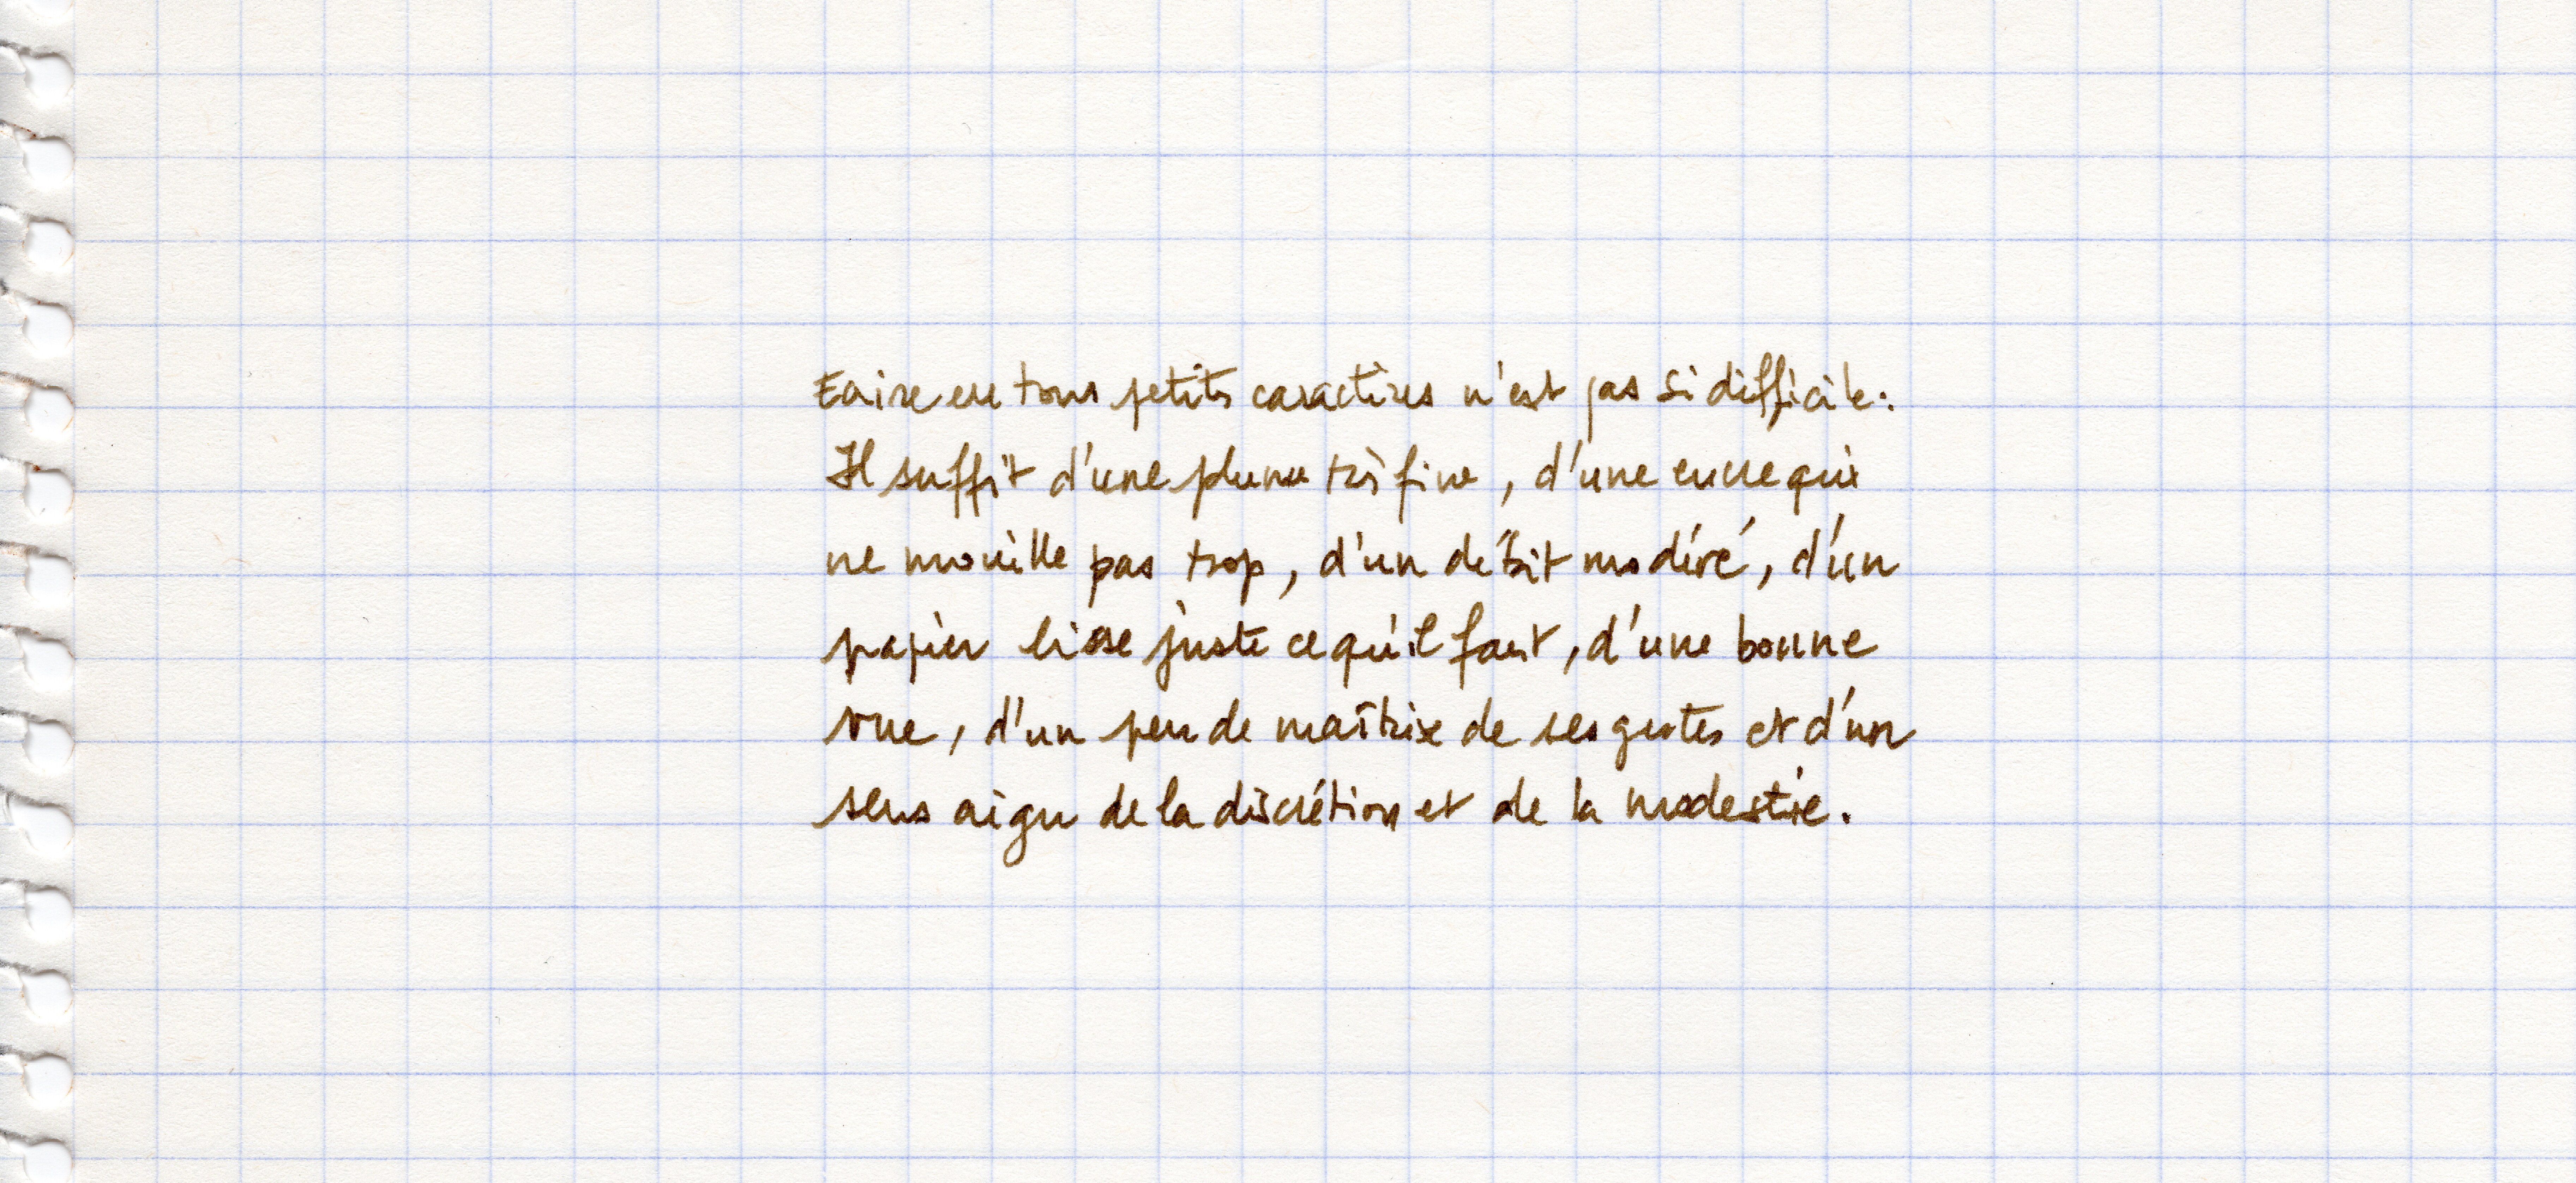 Ecrire en tous petits caractères n'est pas si difficile :
Il suffit d'une plume très fine, d'une encre qui
ne mouille pas trop, d'un débit modéré, d'un
papier lisse juste ce qu'il faut, d'une bonne
vue, d'un peu de maîtrise de ses gestes et d'un
sens aigu de la discrétion et de la modestie.